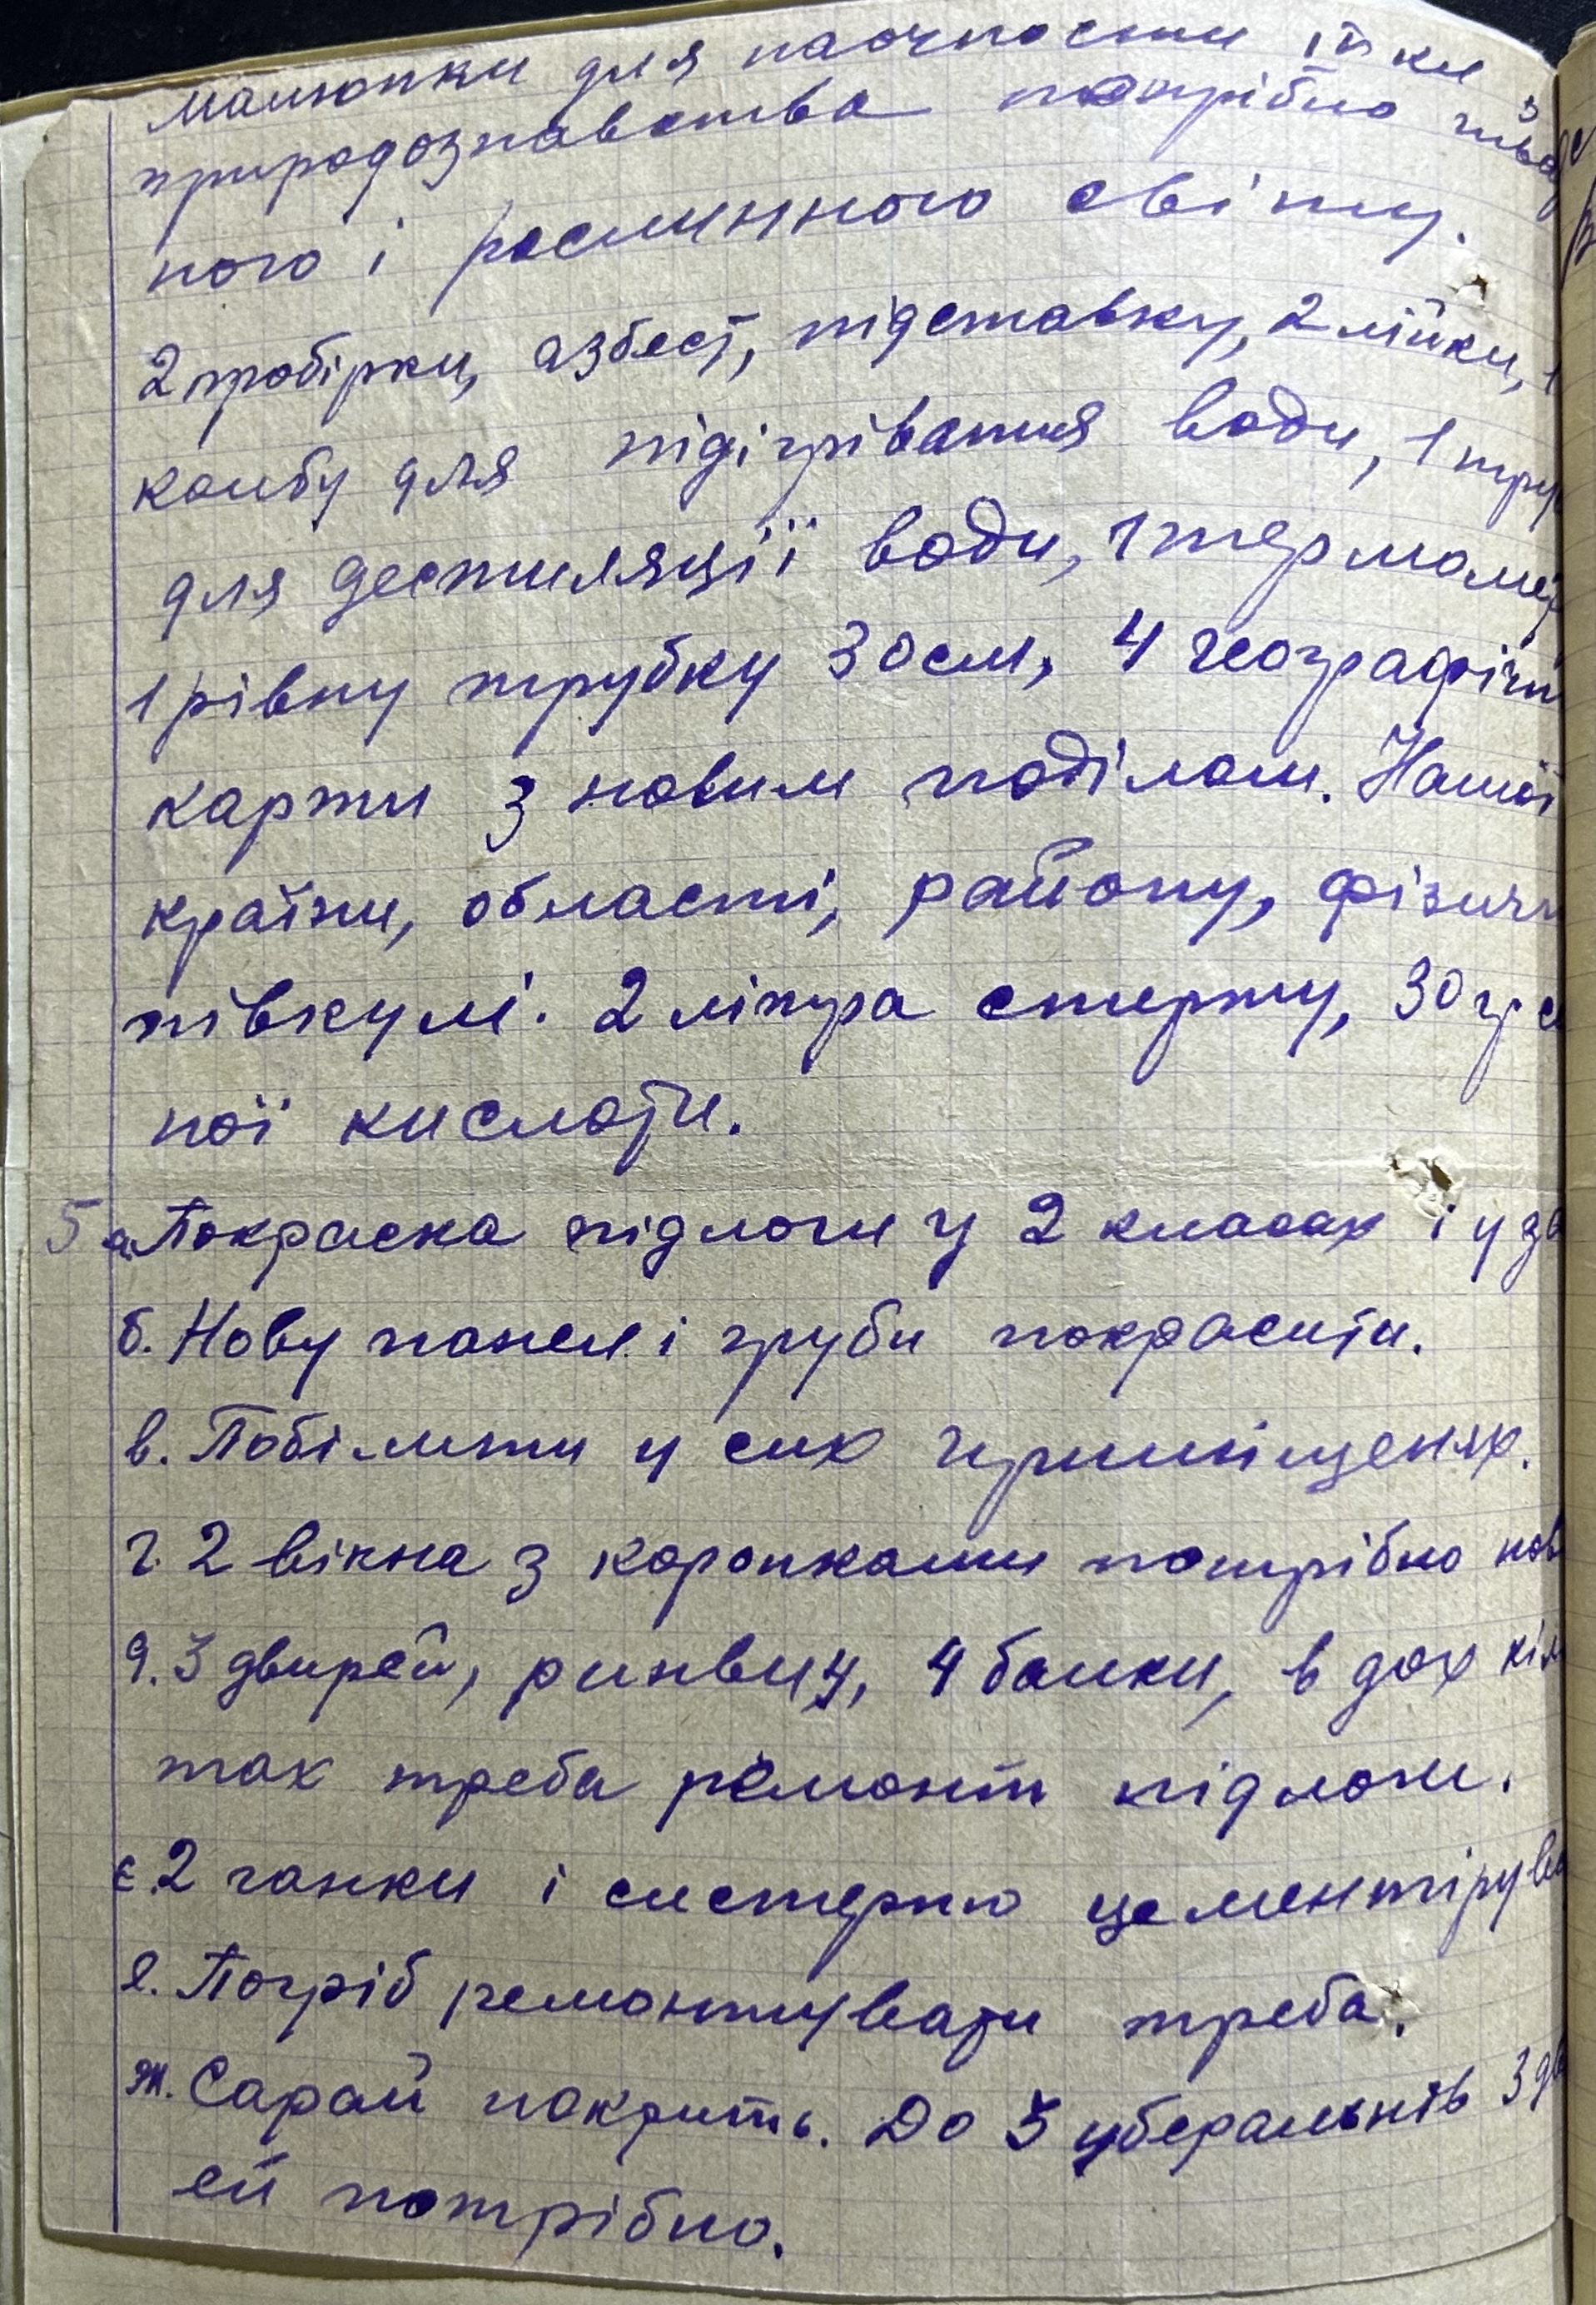 малюнки для наочности
природознавства потрібно твар
ного і рослинного світу.
2 пробірки, азбест, підставку, 2 лійки, 1
колбу для підігрівання води, 1 тру
для дестиляції води, 1 термоме
1 рівну трубку 30 см, 4 географічн
карти з новим поділом. Нашої
країни, області, району, фізичн
півкулі. 2 літра спирту, 30 гр с
ної кислоти.
5 а. Покраска підлоги у 2 класах і у за
б. Нову панел. і груби покрасити.
в. Побілити у сих приміщенях.
г. 2 вікна з коропками потрібно нов
д. 3 двирей, ринвиу, 4 балки, в дох кім
так треба ремонт підлоги.
є. 2 ганки і систерно цементірува
е. Погріб ремонтувати треба.
ж. Сарай покрить. До 3 уберальнів 3 дв
ей потрібно.